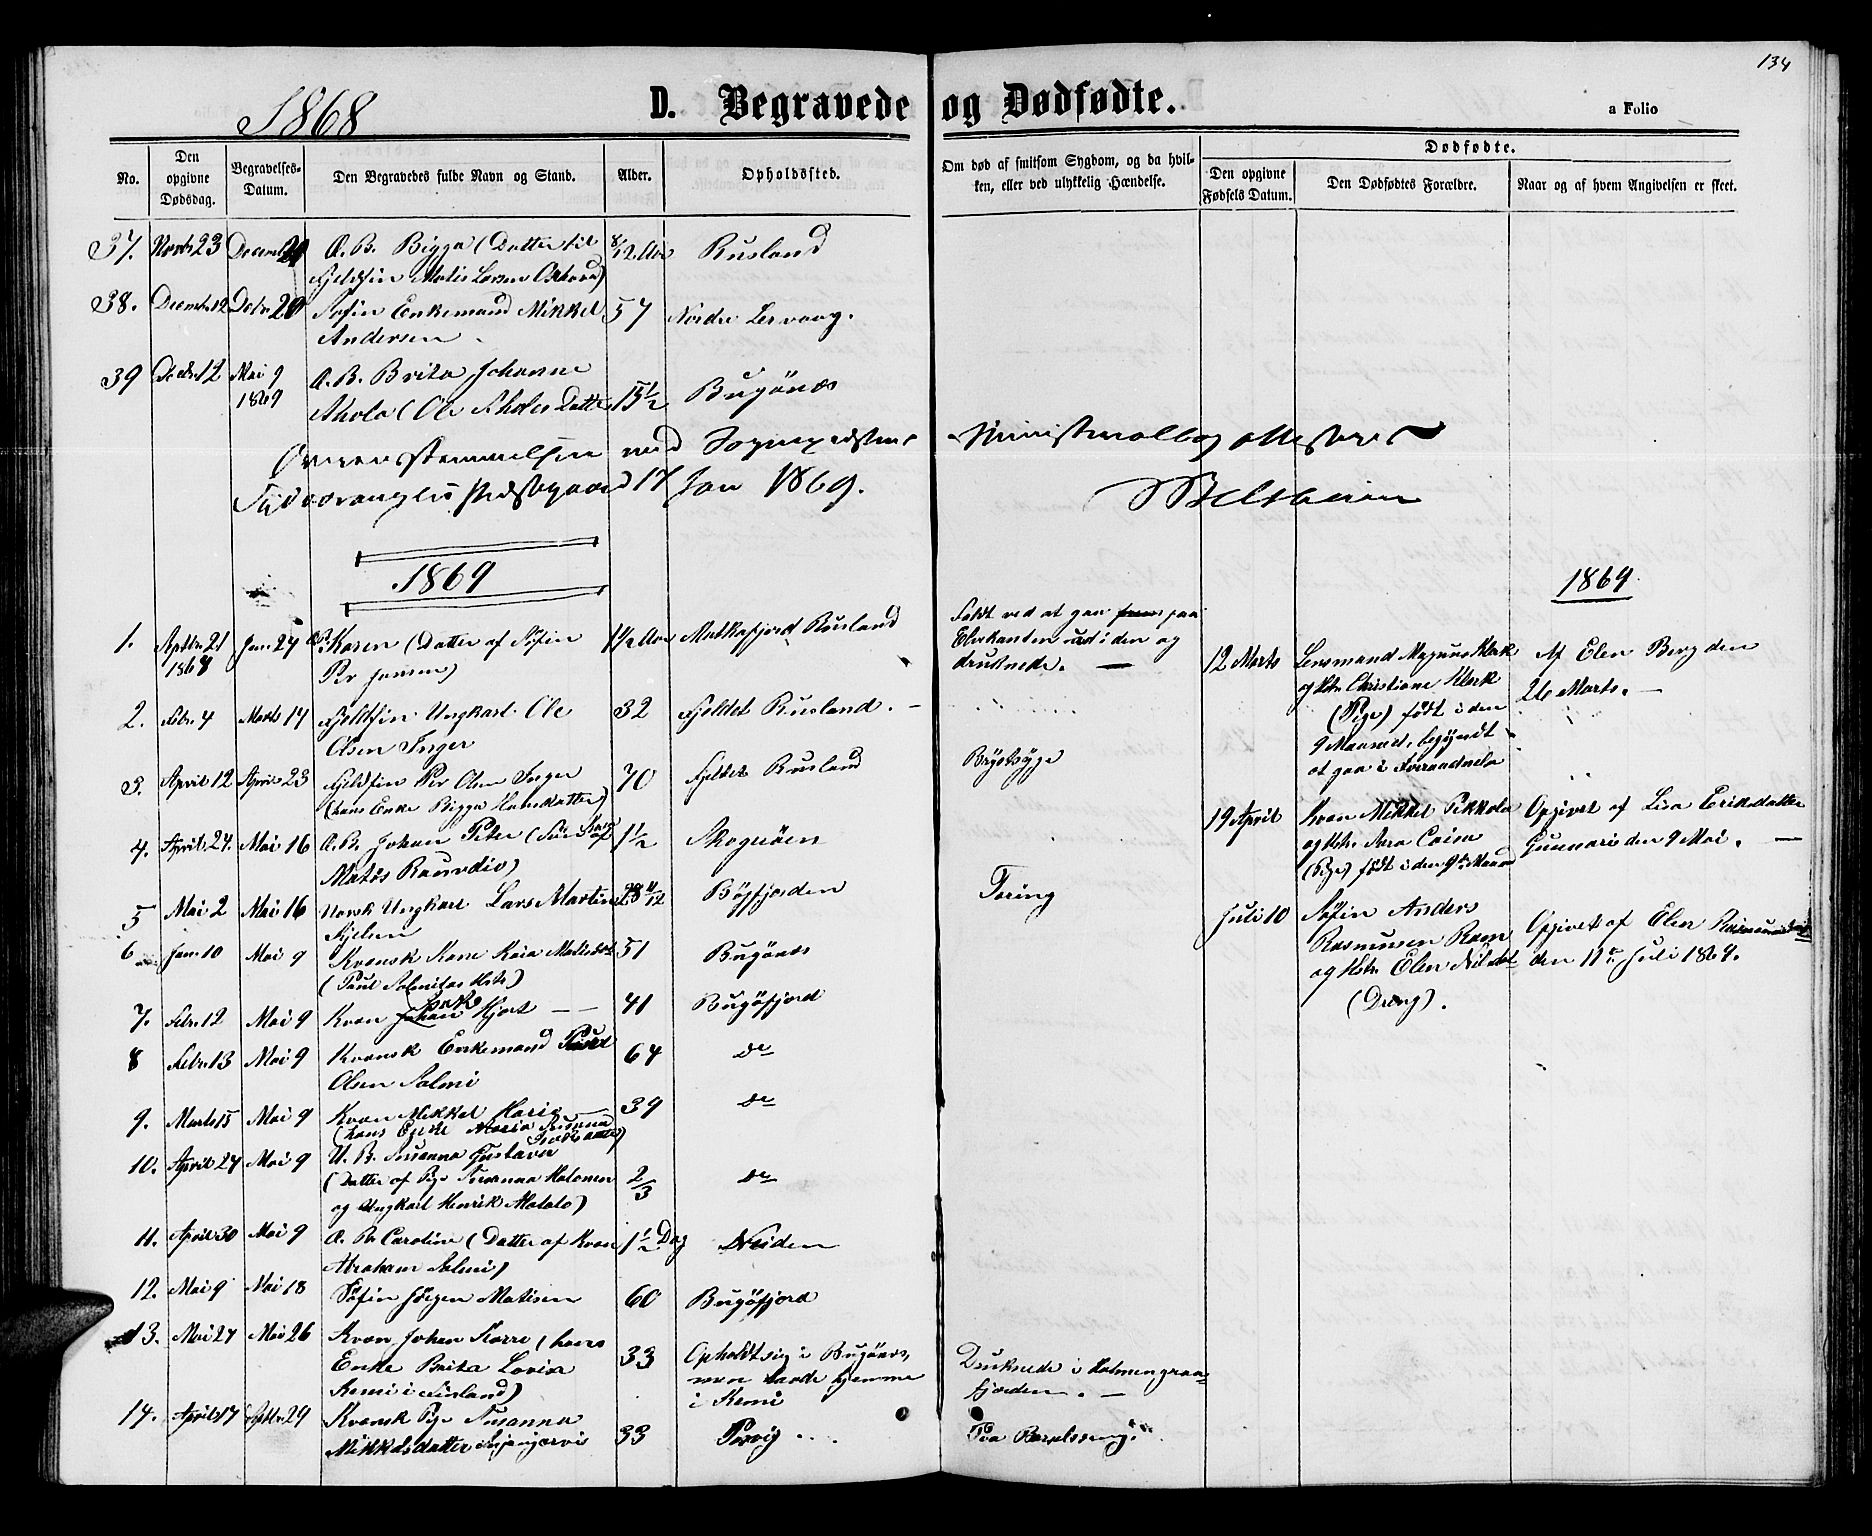 134
1868
D. Begravede og Dødfødte.
a Folio
No.
Den opgivne Dødsdag.
Begravelses-Datum.
Den Begravedes fulde Navn og Stand.
Alder.
Opholdssted.
Om død af smitsom Sygdom, og da hvil-
ken, eller ved ulykkelig Hændelse.
Dødfødte.
Den opgivne Fødsels Datum.
Den Dødfødtes Forældre.
Naar og af hvem Angivelsen er skeet.
37. Novbr 23 Decemb 20 Æ. B. Bigga (Datter til 8/12 Aar Rusland
Fjeldfin Matis Larsen
38. Decmbr 12 Decbr 20 Søfin Enkemand Mikkel 57 Nordre Lervaag.
Andersen
39 Decbr 12 Mai 9 1869 Æ. B. Brita Johanne
Ahola (Ole Aholas Datter 15 1/2 Bugönæs
Overensstemmelsen med Sogneprestens Ministerialbog attesteres
Sydvarangers Præstegaard 17 Jan 1869.
1869
1869
1. 21 1868 Jan. 24 Karen (Datter af Søfin 1 1/2 Aar Rusland
Per Jonsen)
Faldt ved at gaa paa
Elvekanten ud i den og
druknede. —
2. Febr. 4 Marts 14 Fjeldfin Ungkarl Ole 32 Fjeldet Rusland. —
Olsen Inger
3. April 12 April 23 Fjeldfin Per Olsen Inger 70 Fjeldet Rusland Brystsyge
(hans Enke Bigga Hansdatter)
4. April 24. Mai 16 Æ. B. Johan Peter (Søn af 1 1/2 Skogeröen
Matis
5 Mai 2 Mai 16 Norsk Ungkarl Lars Martin 28 4/12 Bögfjorden Tæring
6 Jan. 10 Mai 9 Kvænsk Kone Kaia Matisdat 51 Bugönæs
(Paul Salmilas Kste)
7. Febr. 12 Mai 9 Kvæn Johan Hjort — — 41 Bugöfjord
8 Febr. 13 Mai 9 Kvænsk Enkemand 64 do
Olsen Salmi
9. Marts 15 Mai 9 Kvæn Mikkel — 39 do
(hans Enke Maria Susanna
10. April 24 Mai 9 U. B. Susanna Gustava
(Datter af Pige Susanna Halonen 2/3 do
og Ungkarl Henrik
11. April 30 Mai 9 Æ. B. Caroline (Datter af Kvæn 1 1/2 Dag Neiden
Abraham Salmi)
12. Mai 9 Mai 18 Søfin Jörgen Matisen 60 Bugöfjord
13. Mai 24 Mai 26 Kvæn Johan (hans 33 Opholdt sig i Bugönæs,
Enke Brita Lovisa men havde hjemme
Kemi i Finland) i Kemi
Druknede i Holmengraa-
fjorden. —
14. April 17 29 Kvænsk Pige Susanna
Mikkelsdatter 33 Pasvig Paa Barselseng.
12 Marts
Lensmand Magnus Klerk
og Hstr. Christiane Klerk
(Pige) født i den
9 Maaned, begyndt
at gaa i Forraadnelse
Af Elen Berg den
26 Marts. —
19 April
Kvæn Mikkel Pekkola
og Hstr. Caisa
(Pige) født i den 9de Maaned
Opgivet af Lisa Eriksdatter
den 9 Mai. —
Juli 10
Søfin Anders
Rasmussen
og Hstr. Elen Nilsdat
(Dreng).
Opgivet af Elen
den 11te Juli 1869.